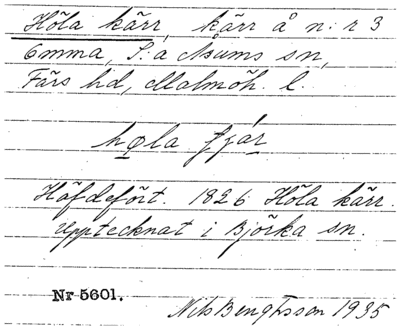 Höla kärr, kärr å n:r 3
Emma, S:a Åsums sn,
Färs hd, Malmöh. l.
hǫla çjár
Häfdefört. 1826 Höla kärr.
Upptecknat i Björka sn.
Nr 5601.
Nils Bengtsson 1935